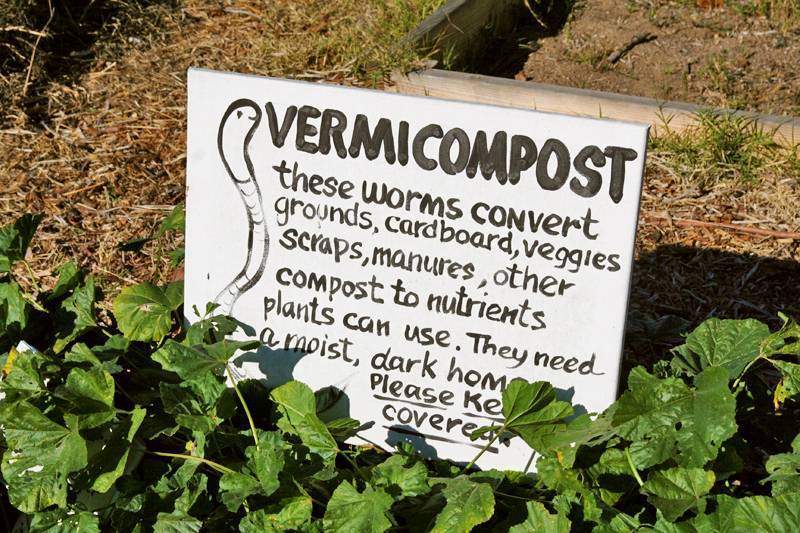 VERMICOMPOST
these worms convert
grounds, cardboard, veggies
scraps, manures, other
compost to nutrients
plants can use. They need
a moist, dark hom
Please Ke
covered